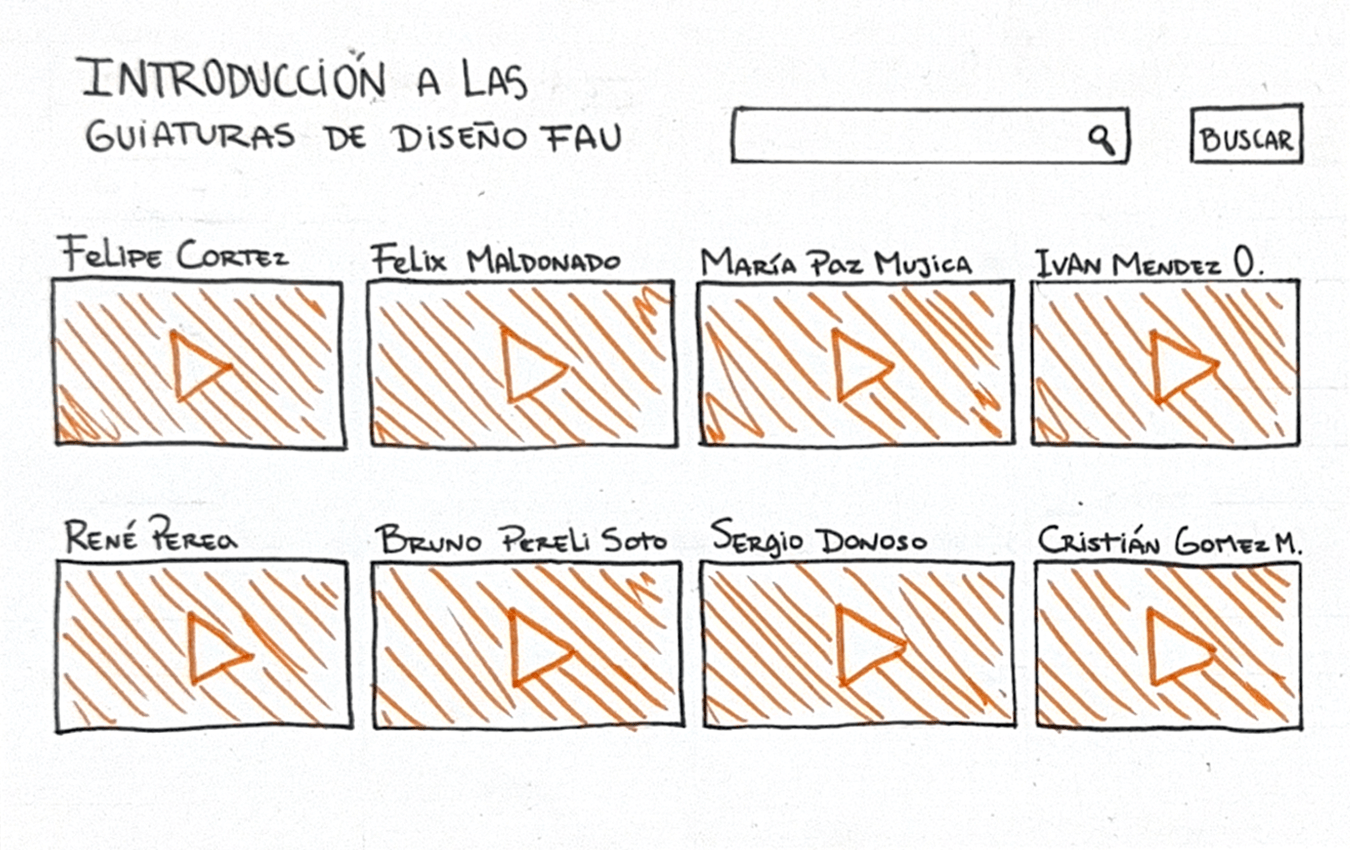 INTRODUCCIÓN A LAS
GUIATURAS DE DISEÑO FAU
BUSCAR
FELIPE CORTEZ
FELIX MALDONADO
MARÍA PAZ MUJICA
IVAN MENDEZ O.
RENÉ PEREA
BRUNO PERELI SOTO
SERGIO DONOSO
CRISTIÁN GOMEZ M.